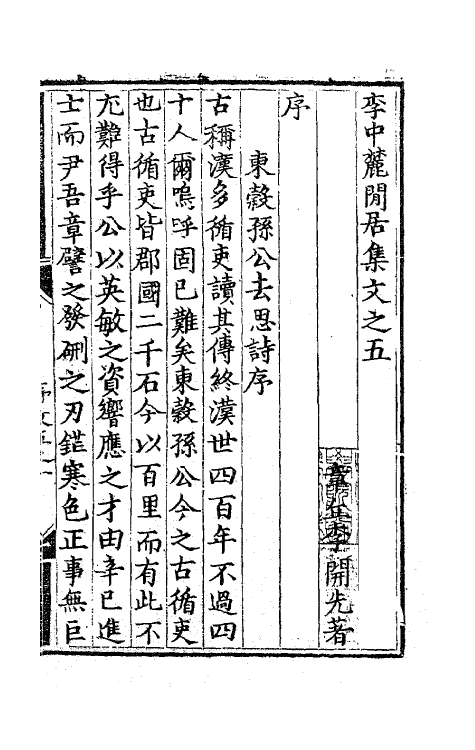 李中麓閒居集文之五
章丘李開先著
序
東穀孫公去思詩序
古稱漢多循吏讀其傳終漢世四百年不過四
十人爾嗚呼固已難矣東穀孫公今之古循吏
也古循吏皆郡國二千石今以百里而有此不
尤難得乎公以英敏之資響應之才由辛巳進
士而尹吾章譬之發硎之刃鋩寒色正事無巨